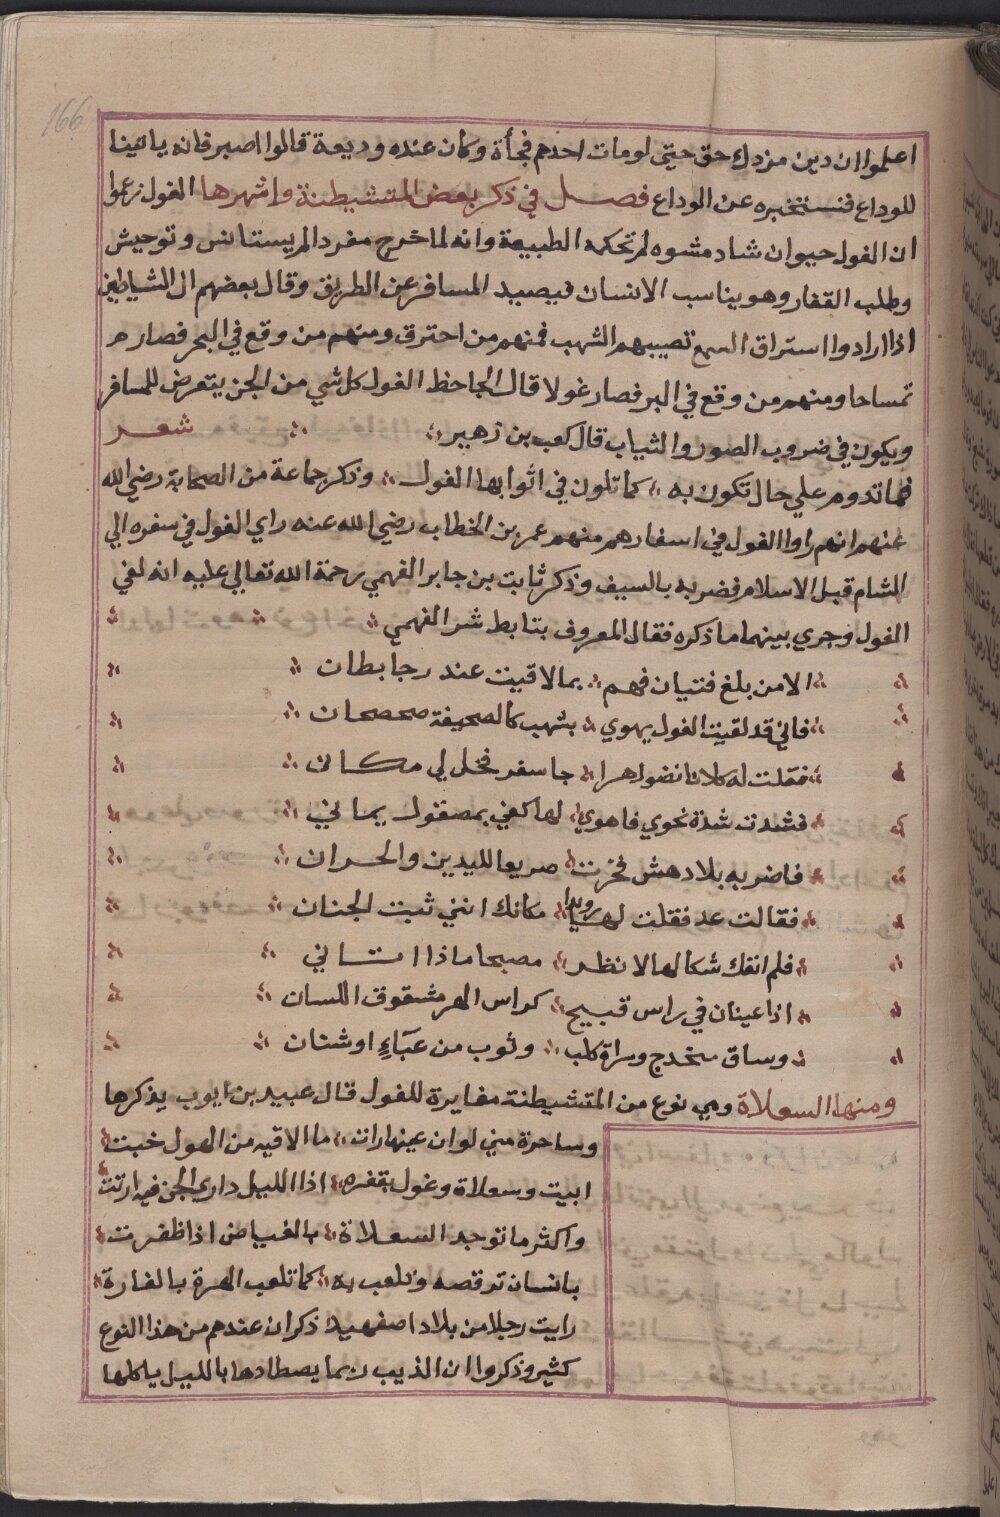 166
اعلموا ان دين مزدك حق حتى لو مات احدهم فجأة وكان عنده وديعة قالوا اصبر فانه ياتينا
للوداع فنستخبره عن الوداع فصل في ذكر بعض المتشيطنة واشهرها الغول زعموا
ان الغول حيوان شاد مشوه لم تحكمه الطبيعة وانه لما خرج مفردا لم يستانس وتوحيش
وطلب القفار وهو يناسب الانسان فيصيد المسافر عن الطريق وقال بعضهم ان الشياطين
اذا ارادوا استراق السمع تصيبهم الشهب فمنهم من احترق ومنهم من وقع في البحر فصار
تمساحا ومنهم من وقع في البر فصار غولا قال الجاحظ الغول كل شي من الجن يتعرض للمسافر
ويكون في ضروب الصور والثياب قال كعب بن زهير شعر
فما تدوم علي حال تكون به كما تلون في اثوابها الغول وذكر جماعة من الصحابة رضي الله
عنهم انهم راوا الغول في اسفارهم منهم عمر بن الخطاب رضي الله عنه راي الغول في سفره الي
الشام قبل الاسلام فضربه بالسيف وذكر ثابت بن جابر الفهمي رحمة الله تعالي عليه انه لقي
الغول وجري بينهما ما ذكره فقال المعروف بتابط شر الفهمي
الا من بلغ فتيان فهم بما لاقيت عند رحا بطان
فاني قد لقيت الغول يهوي بشهب كالصحيفة صحصحان
فقلت له كلانا نضو جا سفر فخل لي مكاني
فشدت شدة نحوي فاهوي لها كفي بمصقول يماني
فاضربه بلا دهش فخرت صريعا لليدين والجران
فقالت عد فقلت لها رويدا مكانك انني ثبت الجنان
فلم انفك لها لانظر مصبحا ماذا اتاني
اذا عينان في راس قبيح كراس الهر مشقوق اللسان
وساق مخدج وسراة كلب وثوب من عباء او شنان
ومنها السعلاة وهي نوع من المتشيطنة مغايرة للغول قال عبيد بن ايوب يذكرها
وساحرة مني لو ان عينها رات ما الاقيه من الهول خبت
ابيت وسعلاة وغول بقفره اذا الليل داري الجن فيه ارتت
واكثر ما توجد السعلاة بالغياض اذا ظفرت
بانسان ترقصه وتلعب به كما تلعب الهرة بالفارة
رايت رجلا من بلاد اصفهيد ذكر ان عندهم من هذا النوع
كثير وذكروا ان الذيب ربما يصطادها بالليل ياكلها